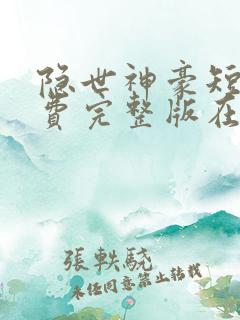 隐世神豪短
费完整版在
張軼驍
未经同意禁止转载